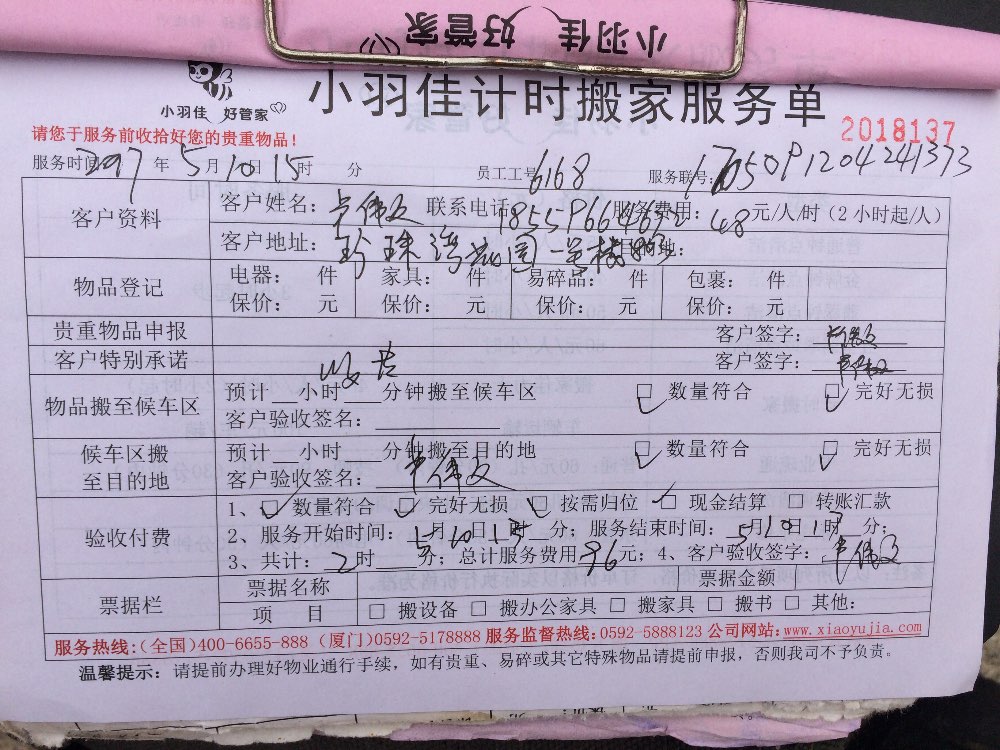 小羽佳 好管家
小羽佳 好管家
小羽佳计时搬家服务单
请您于服务前收拾好您的贵重物品！
2018137
服务时间 年 5月10日15时 分 员工工号 6168 服务联号:
客户资料
客户姓名: 联系电话: 服务费用: 48 元/人/时（2小时起/人）
客户地址: 目的地:
物品登记
电器: 件 家具: 件 易碎品: 件 包裹: 件
保价: 元 保价: 元 保价: 元 保价: 元
贵重物品申报 客户签字:
客户特别承诺 客户签字:
物品搬至候车区
预计 小时 分钟搬至候车区 □ 数量符合 □ 完好无损
客户验收签名:
候车区搬至目的地
预计 小时 分钟搬至目的地 □ 数量符合 □ 完好无损
客户验收签名:
验收付费
1、□ 数量符合 □ 完好无损 □ 按需归位 □ 现金结算 □ 转账汇款
2、服务开始时间: 5月10日15 分; 服务结束时间: 5月10日17 分;
3、共计: 2时 分; 总计服务费用96元; 4、客户验收签字:
票据栏
票据名称 票据金额
项 目 □ 搬设备 □ 搬办公家具 □ 搬家具 □ 搬书 □ 其他:
服务热线:(全国)400-6655-888 (厦门)0592-5178888 服务监督热线:0592-5888123 公司网站:www.xiaoyujia.com
温馨提示: 请提前办理好物业通行手续, 如有贵重、易碎或其它特殊物品请提前申报, 否则我司不予负责。